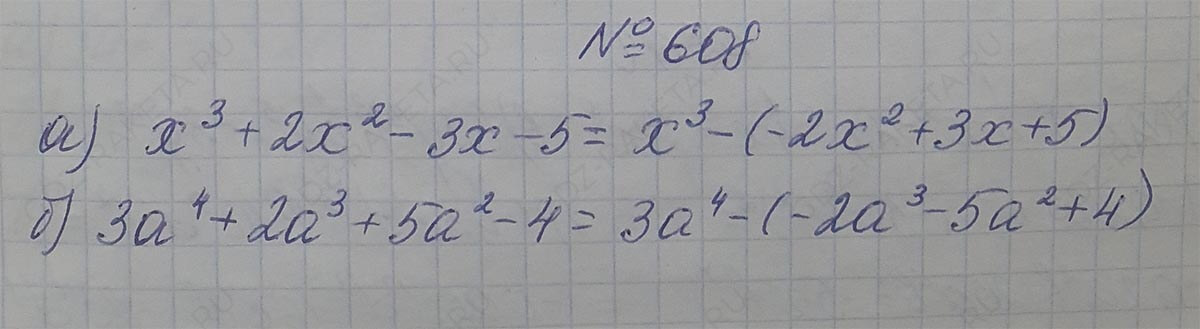 № 608
а) x³ + 2x² - 3x - 5 = x³ - (-2x² + 3x + 5)
б) 3a⁴ + 2a³ + 5a² - 4 = 3a⁴ - (-2a³ - 5a² + 4)